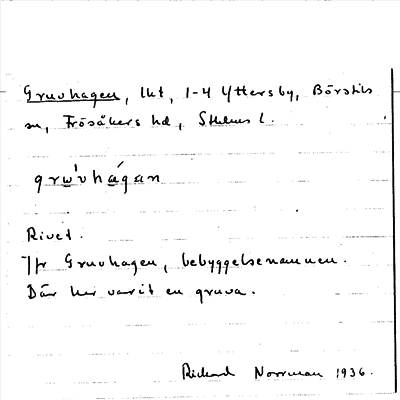 Gruvhagen, lkt, 1-4 Yttersby, Börstils
sn, Frösåkers hd, Sthlms l.
grὼvhágan
Rivet.
Jfr Gruvhagen, bebyggelsenamnen.
Där har varit en gruva.
Richard Norrman 1936.